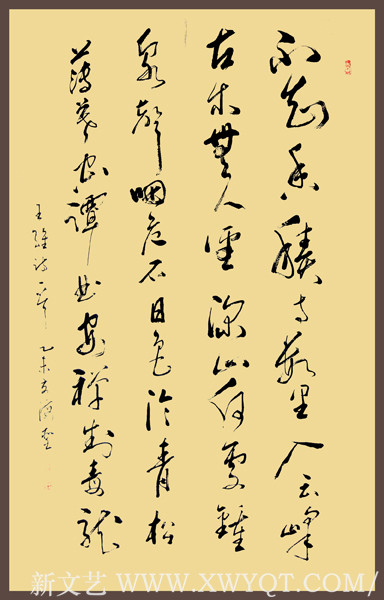 不知香積寺數里入云峰
古木無人徑深山何處鐘
泉聲咽危石日色冷青松
薄暮空潭曲安禪制毒龍
王維詩一 乙未
新文艺 WWW.XWYQT.COM/